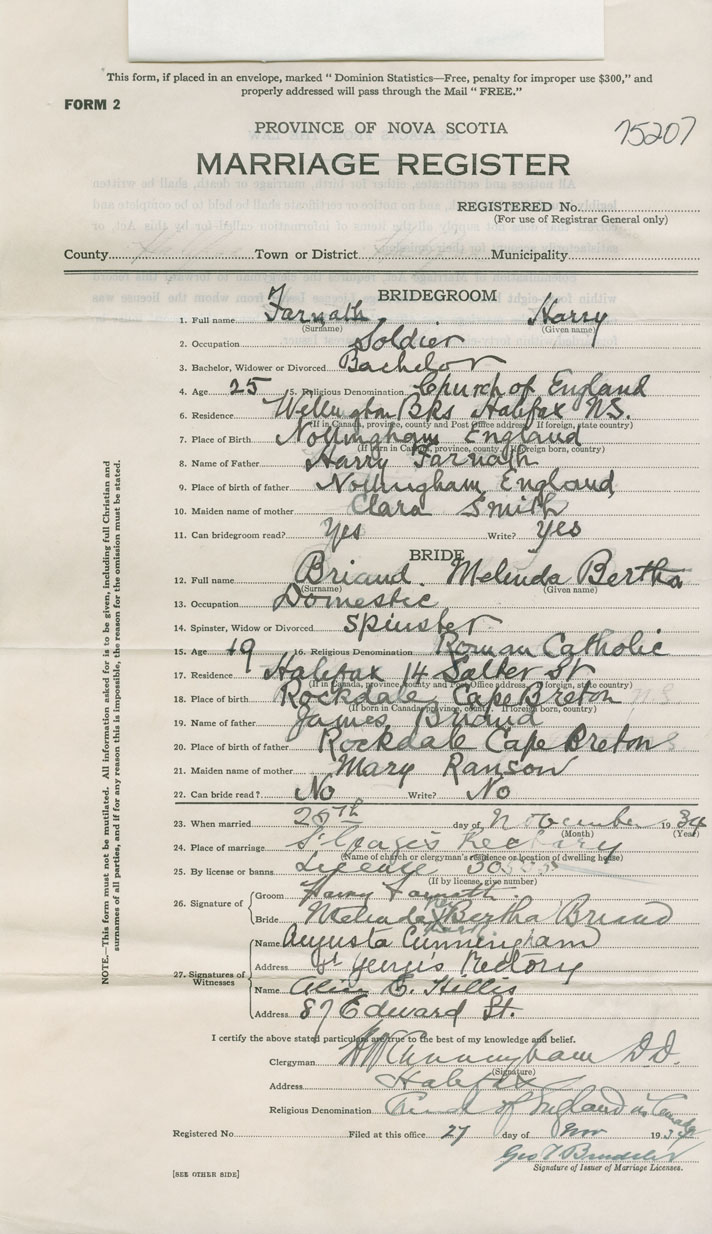 This form, if placed in an envelope, marked " Dominion Statistics—Free, penalty for improper use $300," and
properly addressed will pass through the Mail " FREE."
FORM 2
75207
PROVINCE OF NOVA SCOTIA
MARRIAGE REGISTER
REGISTERED No.
(For use of Registrar General only)
County Town or District Municipality
BRIDEGROOM
1. Full name Farnath Harry
(Surname) (Given name)
2. Occupation Soldier
3. Bachelor, Widower or Divorced Bachelor
4. Age 25 5. Religious Denomination Church of England
6. Residence Wellington Bks Halifax N.S.
(If in Canada, province, county and Post Office address. If foreign, state country)
7. Place of Birth Nottingham England
(If born in Canada, province, county. If foreign born, country)
8. Name of Father Harry Farnath
9. Place of birth of father Nottingham England
10. Maiden name of mother Clara Smith
11. Can bridegroom read? Yes Write? Yes
BRIDE
12. Full name Briand Melinda Bertha
(Surname) (Given name)
13. Occupation Domestic
14. Spinster, Widow or Divorced Spinster
15. Age 19 16. Religious Denomination Roman Catholic
17. Residence Halifax 14 Salter St
(If in Canada, province, county and Post Office address. If foreign, state country)
18. Place of birth Rockdale Cape Breton N S
(If born in Canada, province, county. If foreign born, country)
19. Name of father James Briand
20. Place of birth of father Rockdale Cape Breton
21. Maiden name of mother Mary Ranson
22. Can bride read? No Write? No
23. When married 25th day of November 1934
(Month) (Year)
24. Place of marriage St Georges Rectory
(Name of church or clergyman's residence or location of dwelling house)
25. By license or banns License
(If by license, give number)
26. Signature of Groom Harry Farnath
Bride Melinda Bertha Briand
her
mark
27. Signatures of Witnesses
Name Augusta Cunningham
Address St George's Rectory
Name E. Hillis
Address 87 Edward St.
I certify the above stated particulars are true to the best of my knowledge and belief.
Clergyman Cunningham D.D.
(Signature)
Address Halifax
Religious Denomination of England in Canada
Registered No Filed at this office 27 day of Nov 1934
Geo
Signature of Issuer of Marriage Licenses.
[SEE OTHER SIDE]
NOTE.—This form must not be mutilated. All information asked for is to be given, including full Christian and
surnames of all parties, and if for any reason this is impossible, the reason for the omission must be stated.